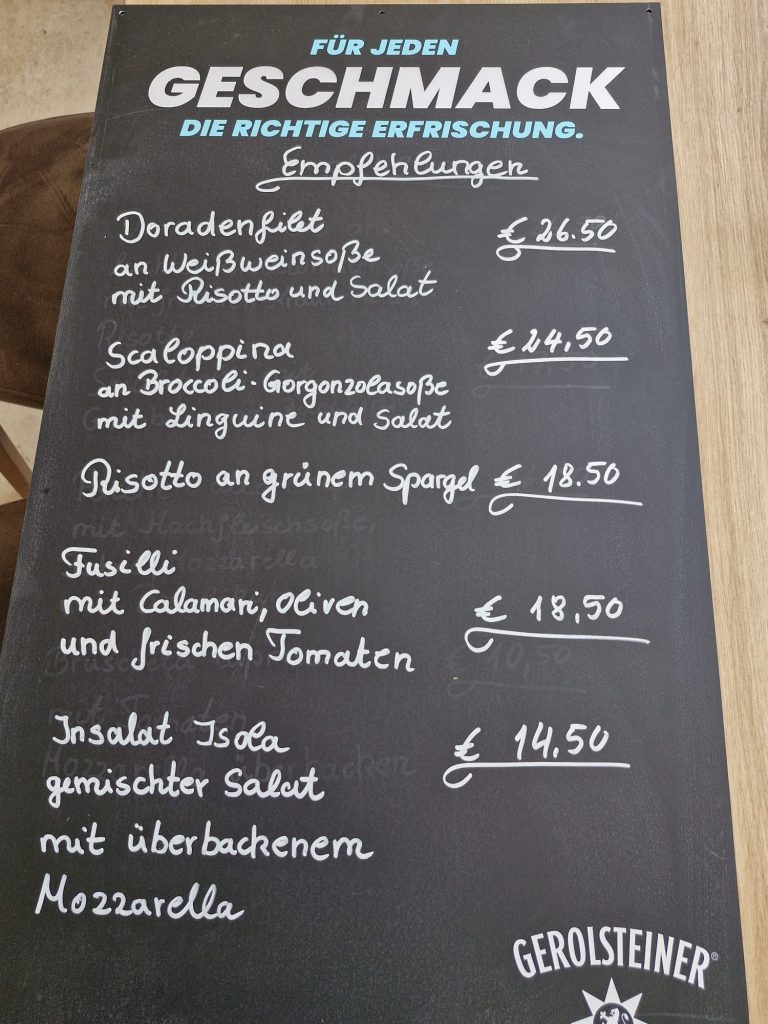 FÜR JEDEN
GESCHMACK
DIE RICHTIGE ERFRISCHUNG.
Empfehlungen
Doradenfilet € 26.50
an Weißweinsoße
mit Risotto und Salat
Scaloppina € 24,50
an Broccoli-Gorgonzolasoße
mit Linguine und Salat
Risotto an grünem Spargel € 18.50
mit Hackfleischsoße,
Mozzarella
Fusilli
mit Calamari, Oliven € 18,50
und frischen Tomaten
€ 10,50
Insalat Isola € 14.50
mit Tomaten
Mozzarella überbacken
gemischter Salat
mit überbackenem
Mozzarella
GEROLSTEINER®